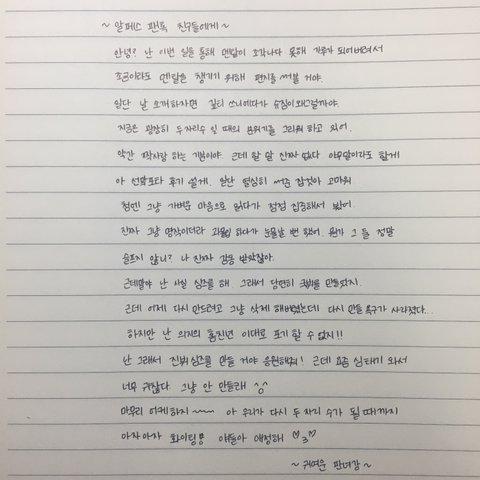 ~ 알페스 팬톡 친구들에게 ~
안녕? 난 이번 일을 통해 멘탈이 조각나다 못해 가루가 되어버려서
조금이라도 멘탈을 챙기기 위해 편지를 써볼 거야.
일단 날 소개하자면 길티 쓰니에다가 수험이
지금은 굉장히 두 자리수 일 때의 분위기를 그리워 하고 있어.
약간 짝사랑 하는 기분이야. 근데 할 말 진짜 없다 아무말이라도 할게
아 선말포타 후기 쓸게. 일단 열심히 써준 잠것아 고마워
첨엔 그냥 가벼운 마음으로 읽다가 점점 집중해서 봤어.
진짜 그냥 명작이더라 과몰입 하다가 눈물날 뻔 했어. 뭔가 그 들 정말
슬프지 않니? 나 진짜 감동 받았잖아.
근데말야 난 사실 심즈를 해 그래서 당연히 만들었지.
근데 어제 다시 만드려고 그냥 삭제 해버렸는데 다시 만들 욕구가 사라졌다...
하지만 난 의지의 홈진년 이대로 포기 할 수 없지!!
난 그래서 진뷔심즈를 만들 거야 응원해줘! 근데 요즘 심태기 와서
너무 귀찮다 그냥 안 만들래 ^^
마무리 어케하지 ~~~ 아 우리가 다시 두 자리 수가 될 때까지
아자아자 화이팅!! 얘들아 애정해 ♡3♡
~ 귀여운 판녀강 ~